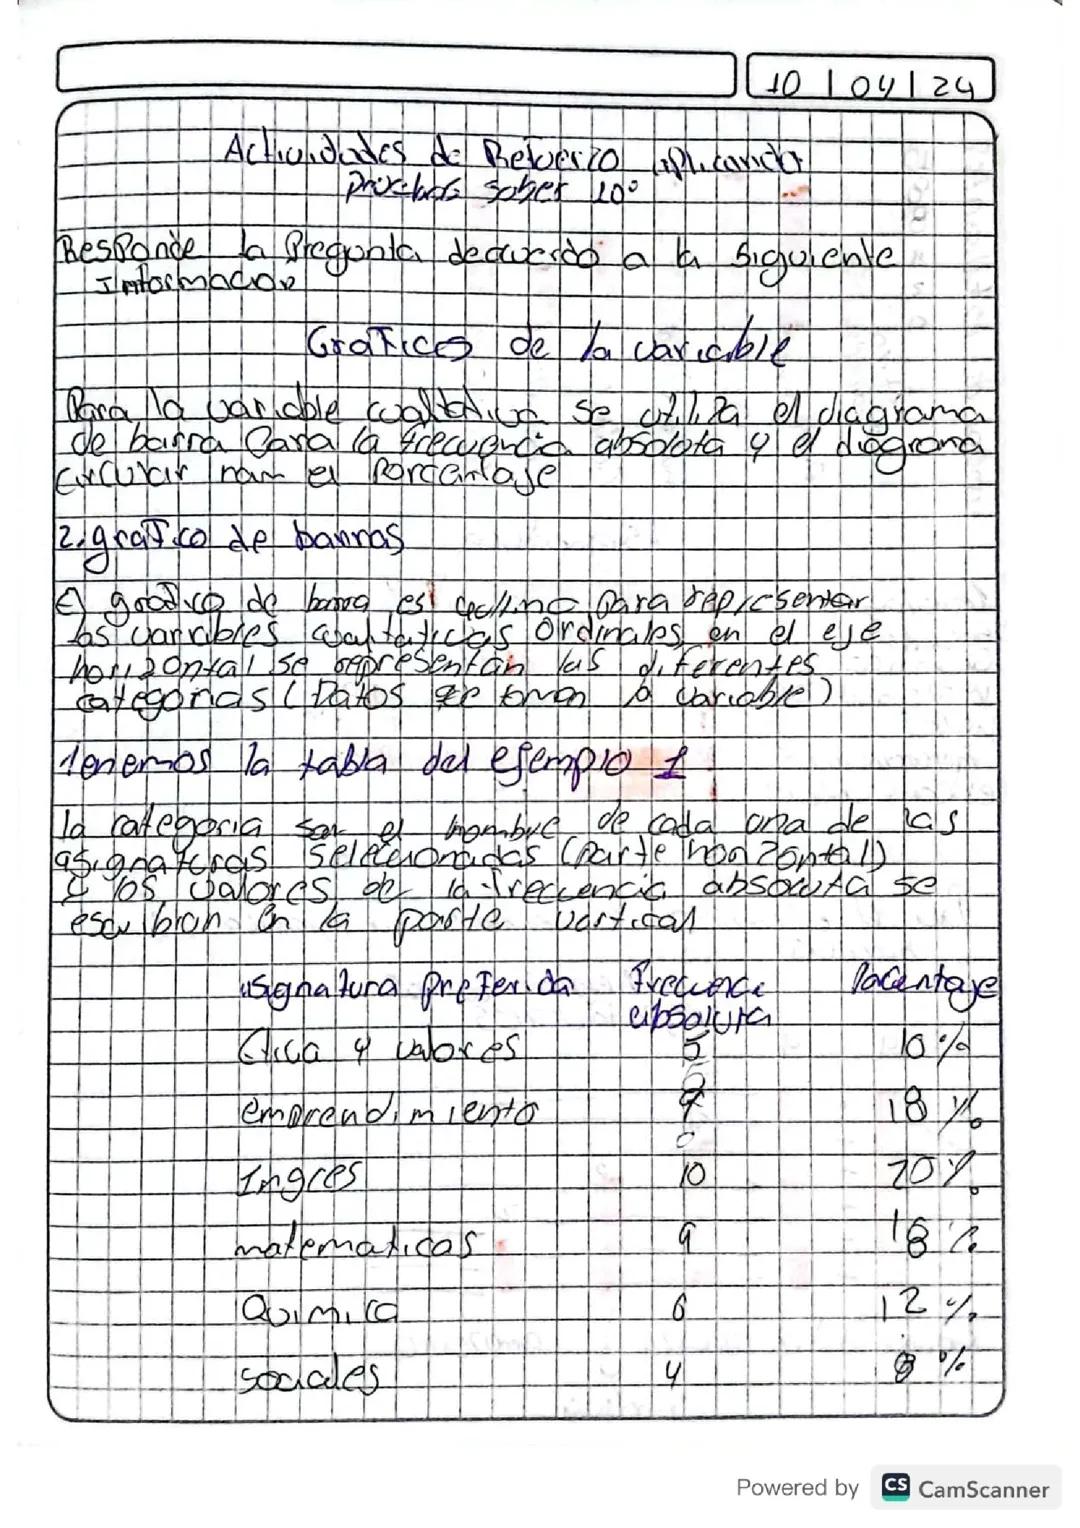 10 | 04 | 24
Actividades de Refuerzo aplicando
pruebas saber 10°
Responde la Pregunta deacuerdo a la siguiente
Informacion
Graficos de la variable
Para la variable cualitativa se utiliza el diagrama
de barra Para la frecuencia absoluta y el diagrama
circular el Porcentaje
2. grafico de barras
El grafico de barra es Para representar
las variables cualitaticas Ordinales, en el eje
horizontal se representan las diferentes
categorias (Datos que toman la variable)
Tenemos la tabla del ejemplo 1
la categoria son el nombre de cada una de las
asignaturas selecionadas (parte horizontal)
y los valores de la frecuencia absoluta se
escribian en la parte vertical
asignatura preferida Frecuencia Pocentaje
absoluta
Etica y valores 5 10%
emprendimiento 9 18%
Ingres 10 20%
matematicas 9 18%
Quimica 6 12%
sociales 4 8%
Powered by CS CamScanner